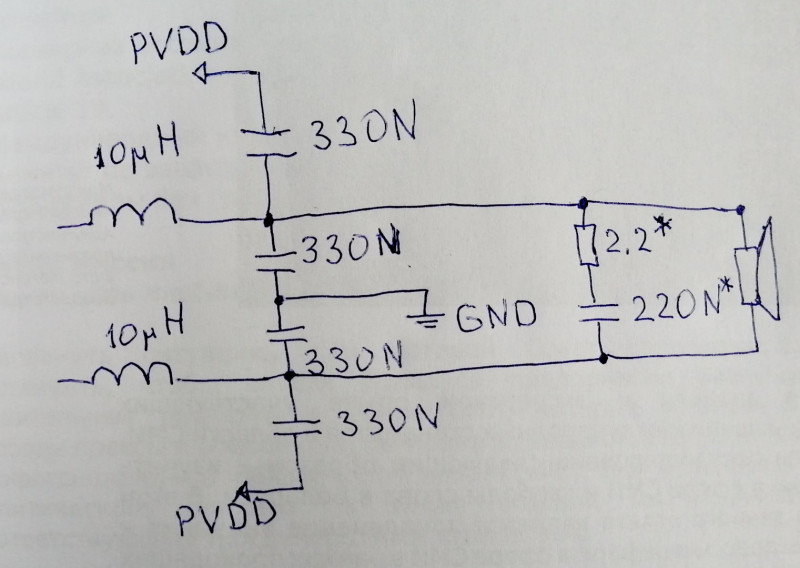 PVDD
330N
10μH
2.2*
330N
220N*
GND
10μH
330N
330N
PVDD